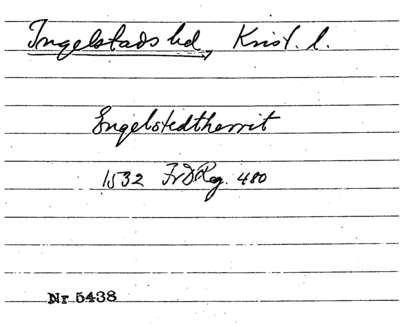 Ingelstads hd, Krist. l.
Engelstedtherrit
1532 FrDReg. 480
Nr 5438